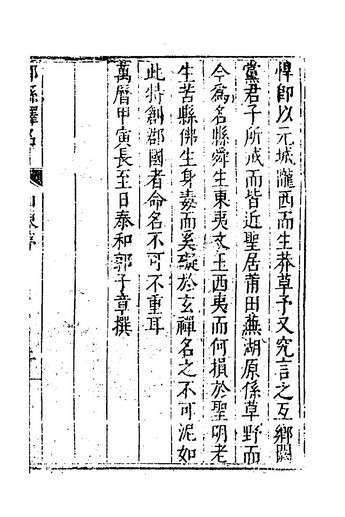 悍卽以元城隴西而生莽草予又究言之互鄉闕
黨君子所戒而皆近聖居莆田蕪湖原係草野而
今為名縣舜生東夷文王西夷而何損於聖明老
生苦縣佛生身毒而奚礙於玄禪名之不可泥如
此特創郡國者命名不可不重耳
萬曆甲寅長至日泰和郭子章撰
郡縣釋名